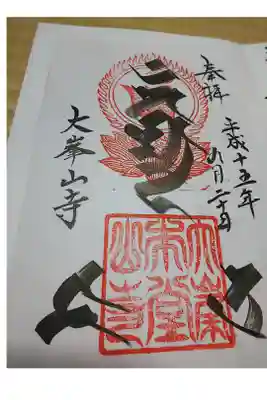 奉拝
平成十五年
九月二十日
大峯山寺
大峯
本堂
山寺